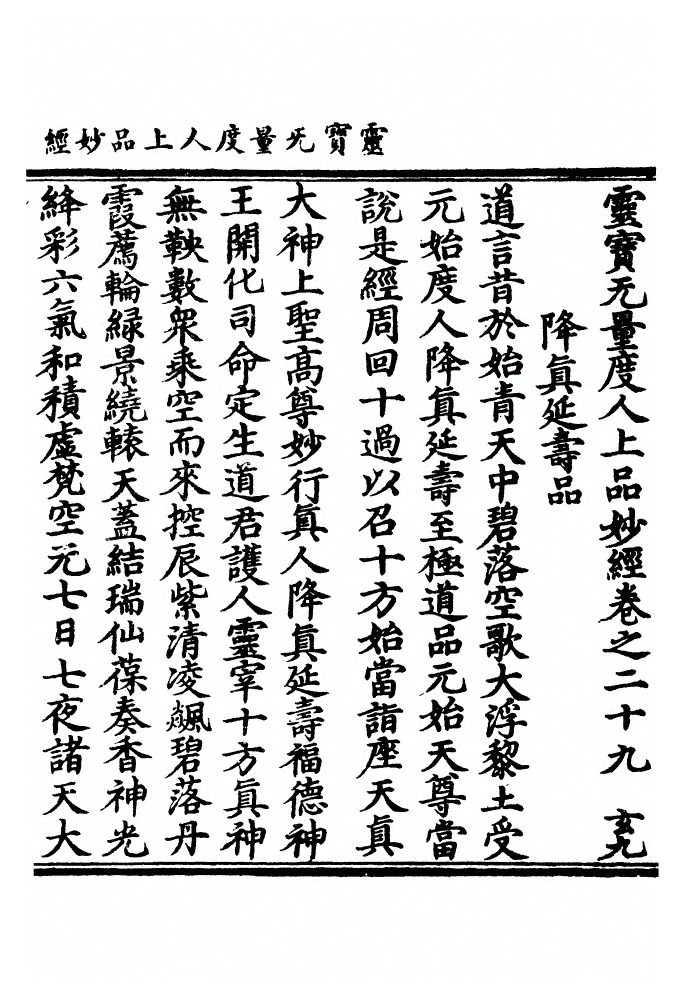 靈寶无量度人上品妙經
靈寶无量度人上品妙經卷之二十九 玄九
降眞延壽品
道言昔於始青天中碧落空歌大浮黎土受
元始度人降眞延壽至極道品元始天尊當
說是經周回十過以召十方始當詣座天眞
大神上聖高尊妙行眞人降眞延壽福德神
王開化司命定生道君護人靈宰十方眞神
無鞅數衆乘空而來控辰紫清凌飊碧落丹
霞薦輪緑景繞轅天蓋結瑞仙葆奏香神光
絳彩六氣和積虛梵空元七日七夜諸天大